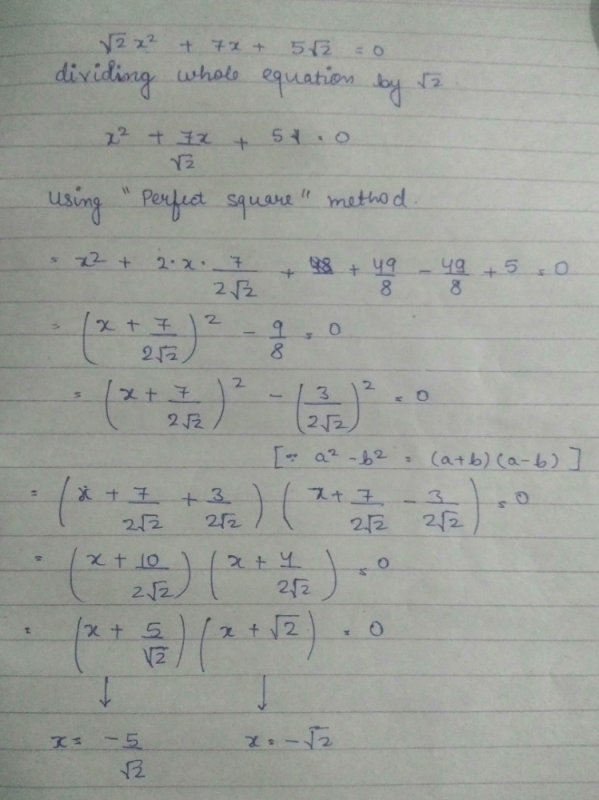 √2 x² + 7x + 5√2 = 0
dividing whole equation by √2.
x² + 7x/√2 + 5 = 0
Using "Perfect square" method.
= x² + 2·x·7/2√2 + 49/8 - 49/8 + 5 = 0
= (x + 7/2√2)² - 9/8 = 0
= (x + 7/2√2)² - (3/2√2)² = 0
[∵ a² - b² = (a+b)(a-b)]
= (x + 7/2√2 + 3/2√2) (x + 7/2√2 - 3/2√2) = 0
= (x + 10/2√2) (x + 4/2√2) = 0
= (x + 5/√2) (x + √2) = 0
↓ ↓
x = -5/√2 x = -√2